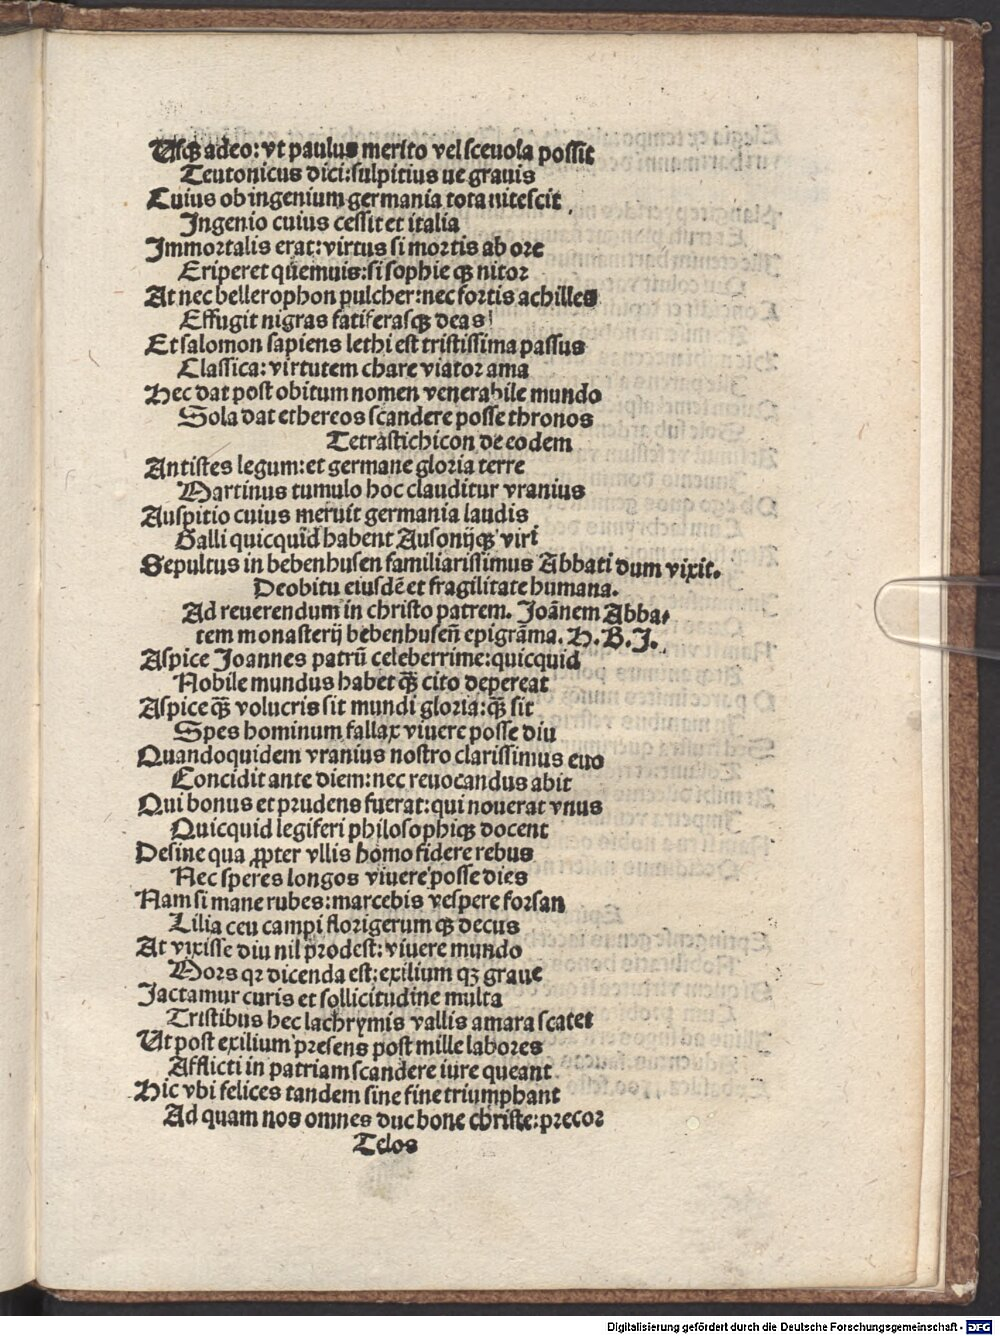 Usqꝫ adeo: vt paulus merito vel sceuola possit
Teutonicus dici: sulpitius ue grauis
Cuius ob ingenium germania tota nitescit
Ingenio cuius cessit et italia
Immortalis erat: virtus si mortis ab ore
Eriperet quēmuis: si sophie qꝫ nitor
At nec bellerophon pulcher: nec fortis achilles
Effugit nigras fatiferasqꝫ deas
Et salomon sapiens lethi est tristissima passus
Classica: virtutem chare viator ama
Hec dat post obitum nomen venerabile mundo
Sola dat ethereos scandere posse thronos
Tetrastichicon de eodem
Antistes legum: et germane gloria terre
Martinus tumulo hoc clauditur vranius
Auspitio cuius meruit germania laudis
Galli quicquid habent Ausonijqꝫ viri
Sepultus in bebenhusen familiarissimus Abbati dum vixit.
De obitu eiusdē et fragilitate humana.
Ad reuerendum in christo patrem. Joānem Abba-
tem monasterij bebenhuseñ epigrāma. H. B. J.
Aspice Joannes patrū celeberrime: quicquid
Nobile mundus habet qꝫ̄ cito depereat
Aspice qꝫ̄ volucris sit mundi gloria: qꝫ̄ sit
Spes hominum fallax viuere posse diu
Quandoquidem vranius nostro clarissimus euo
Concidit ante diem: nec reuocandus abit
Qui bonus et prudens fuerat: qui nouerat vnus
Quicquid legiferi philosophiqꝫ docent
Desine qua ꝓpter vllis homo fidere rebus
Nec speres longos viuere posse dies
Nam si mane rubes: marcebis vespere forsan
Lilia ceu campi florigerum qꝫ decus
At vixisse diu nil prodest: viuere mundo
Mors qꝛ dicenda est: exilium qꝫ graue
Jactamur curis et sollicitudine multa
Tristibus hec lachrymis vallis amara scatet
Ut post exilium presens post mille labores
Afflicti in patriam scandere iure queant
Hic vbi felices tandem sine fine triumphant
Ad quam nos omnes duc bone christe: precor
Telos
Digitalisierung gefördert durch die Deutsche Forschungsgemeinschaft - DFG